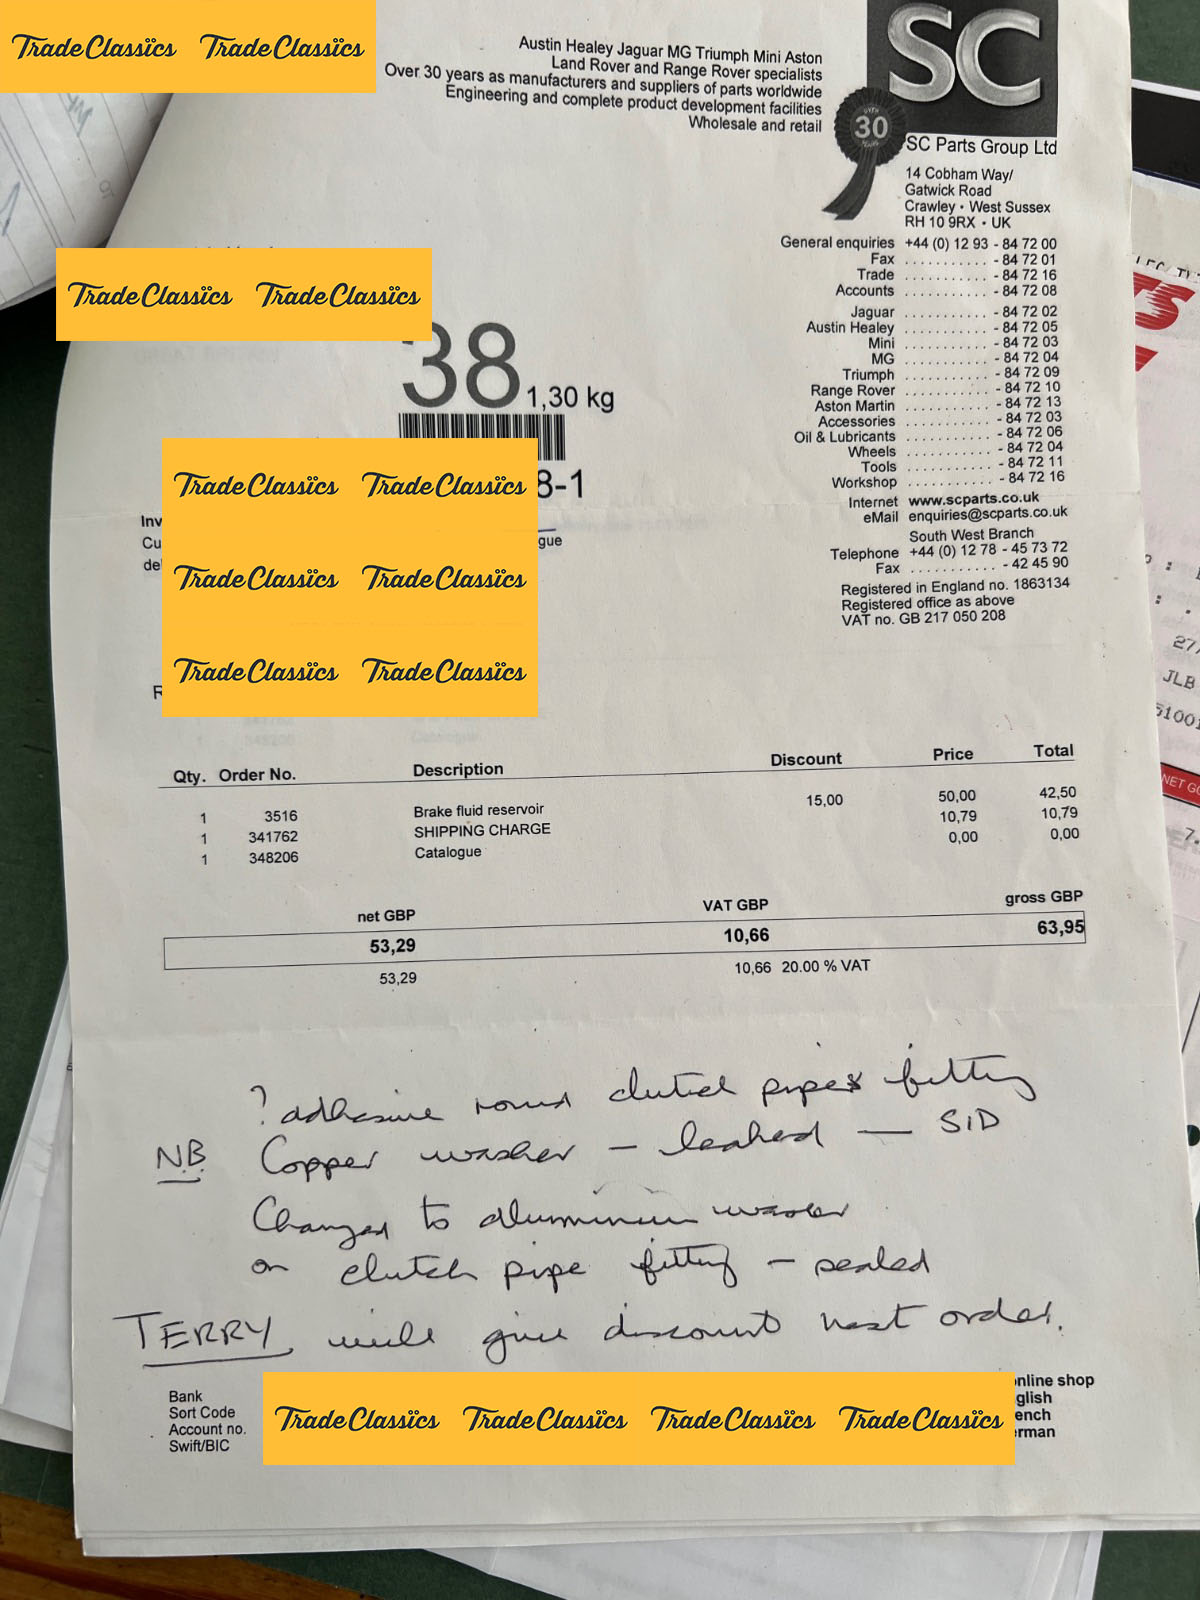 TradeClassics TradeClassics
Austin Healey Jaguar MG Triumph Mini Aston
Land Rover and Range Rover specialists
Over 30 years as manufacturers and suppliers of parts worldwide
Engineering and complete product development facilities
Wholesale and retail
SC
30
SC Parts Group Ltd
14 Cobham Way/
Gatwick Road
Crawley • West Sussex
RH 10 9RX • UK
General enquiries +44 (0) 12 93 - 84 72 00
Fax ........... - 84 72 01
Trade ........... - 84 72 16
Accounts ........... - 84 72 08
Jaguar ........... - 84 72 02
Austin Healey ........... - 84 72 05
Mini ........... - 84 72 03
MG ........... - 84 72 04
Triumph ........... - 84 72 09
Range Rover ........... - 84 72 10
Aston Martin ........... - 84 72 13
Accessories ........... - 84 72 03
Oil & Lubricants ........... - 84 72 06
Wheels ........... - 84 72 04
Tools ........... - 84 72 11
Workshop ........... - 84 72 16
Internet www.scparts.co.uk
eMail enquiries@scparts.co.uk
South West Branch
Telephone +44 (0) 12 78 - 45 73 72
Fax ........... - 42 45 90
Registered in England no. 1863134
Registered office as above
VAT no. GB 217 050 208
TradeClassics TradeClassics
38 1,30 kg
TradeClassics TradeClassics 8-1
Inv
Cu gue
de
TradeClassics TradeClassics
TradeClassics TradeClassics
Qty. Order No. Description Discount Price Total
1 3516 Brake fluid reservoir 15,00 50,00 42,50
1 341762 SHIPPING CHARGE 10,79 10,79
1 348206 Catalogue 0,00 0,00
net GBP VAT GBP gross GBP
53,29 10,66 63,95
53,29 10,66 20.00 % VAT
? adhesive round clutch pipes fitting
NB Copper washer - leaked - SID
Changed to aluminium washer
on clutch pipe fitting - sealed
TERRY will give discount next order.
Bank
Sort Code
Account no.
Swift/BIC
TradeClassics TradeClassics TradeClassics TradeClassics
nline shop
glish
ench
rman
27/
JLB
51001
NET GO
7.